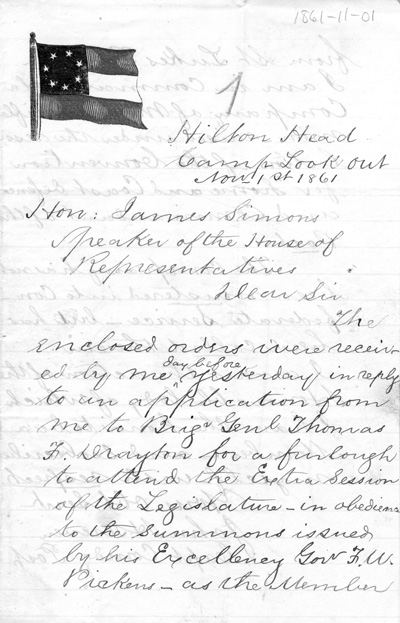 1861-11-01
1
Hilton Head
Camp Look out
Nov 1st 1861
Hon: James Simons
Speaker of the House of
Representatives
Dear Sir
The
enclosed orders were receiv-
ed by me day before Yesterday in reply
to an application from
me to Brigr Genl Thomas
F. Drayton for a furlough
to attend the Extra Session
of the Legislature – in obedience
to the Summons issued
by his Excellency Gov F. W.
Pickens – as the Member